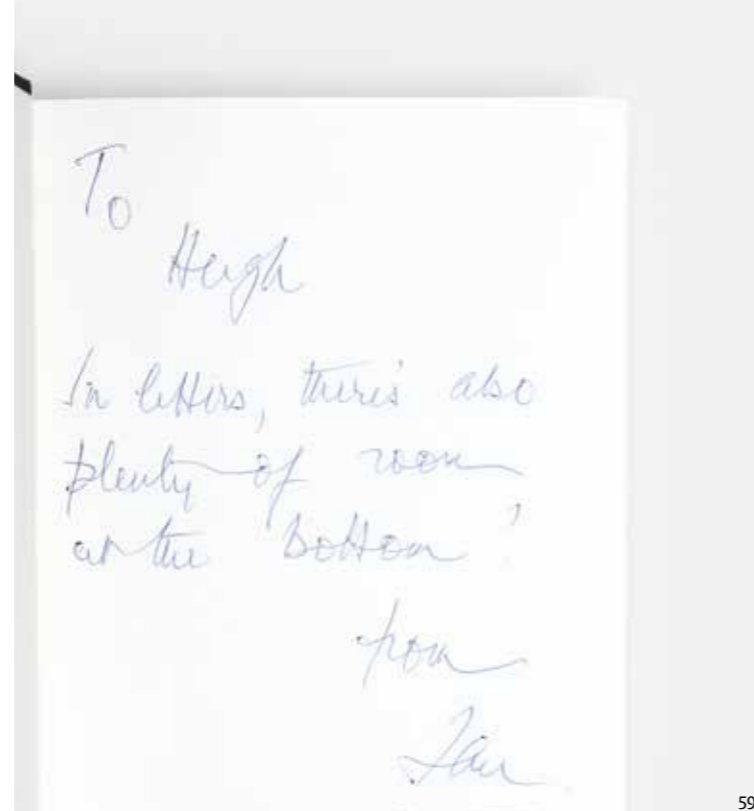 To
Hugh
In letters, there's also
plenty of room
at the bottom!
from
Ian
59